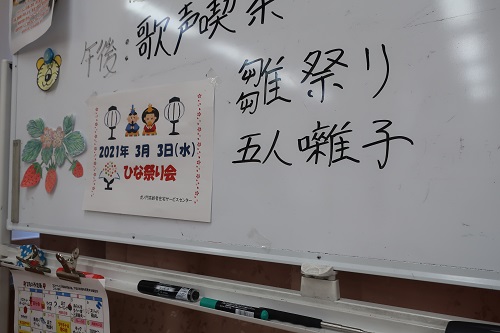 午後:歌声喫茶
雛祭り
五人囃子
2021年 3月 3日(水)
ひな祭り会